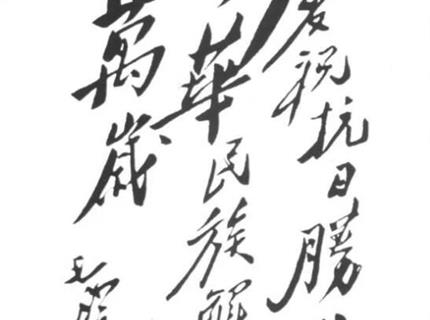 慶祝抗日勝
華民族解
萬歲
毛澤